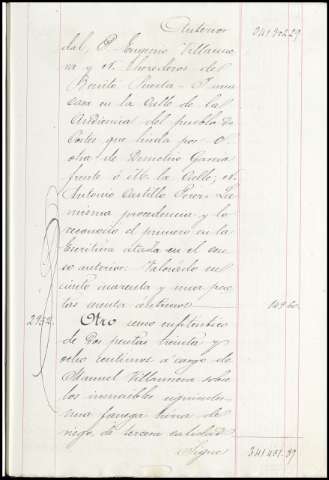 Anterior 341.302.29
dal, P. Eugenio Villanue
va y N. herederos de
Benito Puerta - Y una
casa en la Calle de la
Audiencia del pueblo de
Cortes que linda por O.
otra de Demetrio Garcia
frente ó M. la Calle; N.
Antonio Castillo Perez - La
misma procedencia y lo
reconoció el primero en la
Escritura citada en el cen
so anterior. Valorado en
ciento cuarenta y nueve pese
tas sesenta centimos 149.60.
2952. Otro censo enfitéutico
de dos pesetas treinta y
ocho centimos á cargo de
Manuel Villanueva sobre
los inmuebles siguientes
una fanega tierra de
riego, de tercera calidad
Sigue 341.451.89